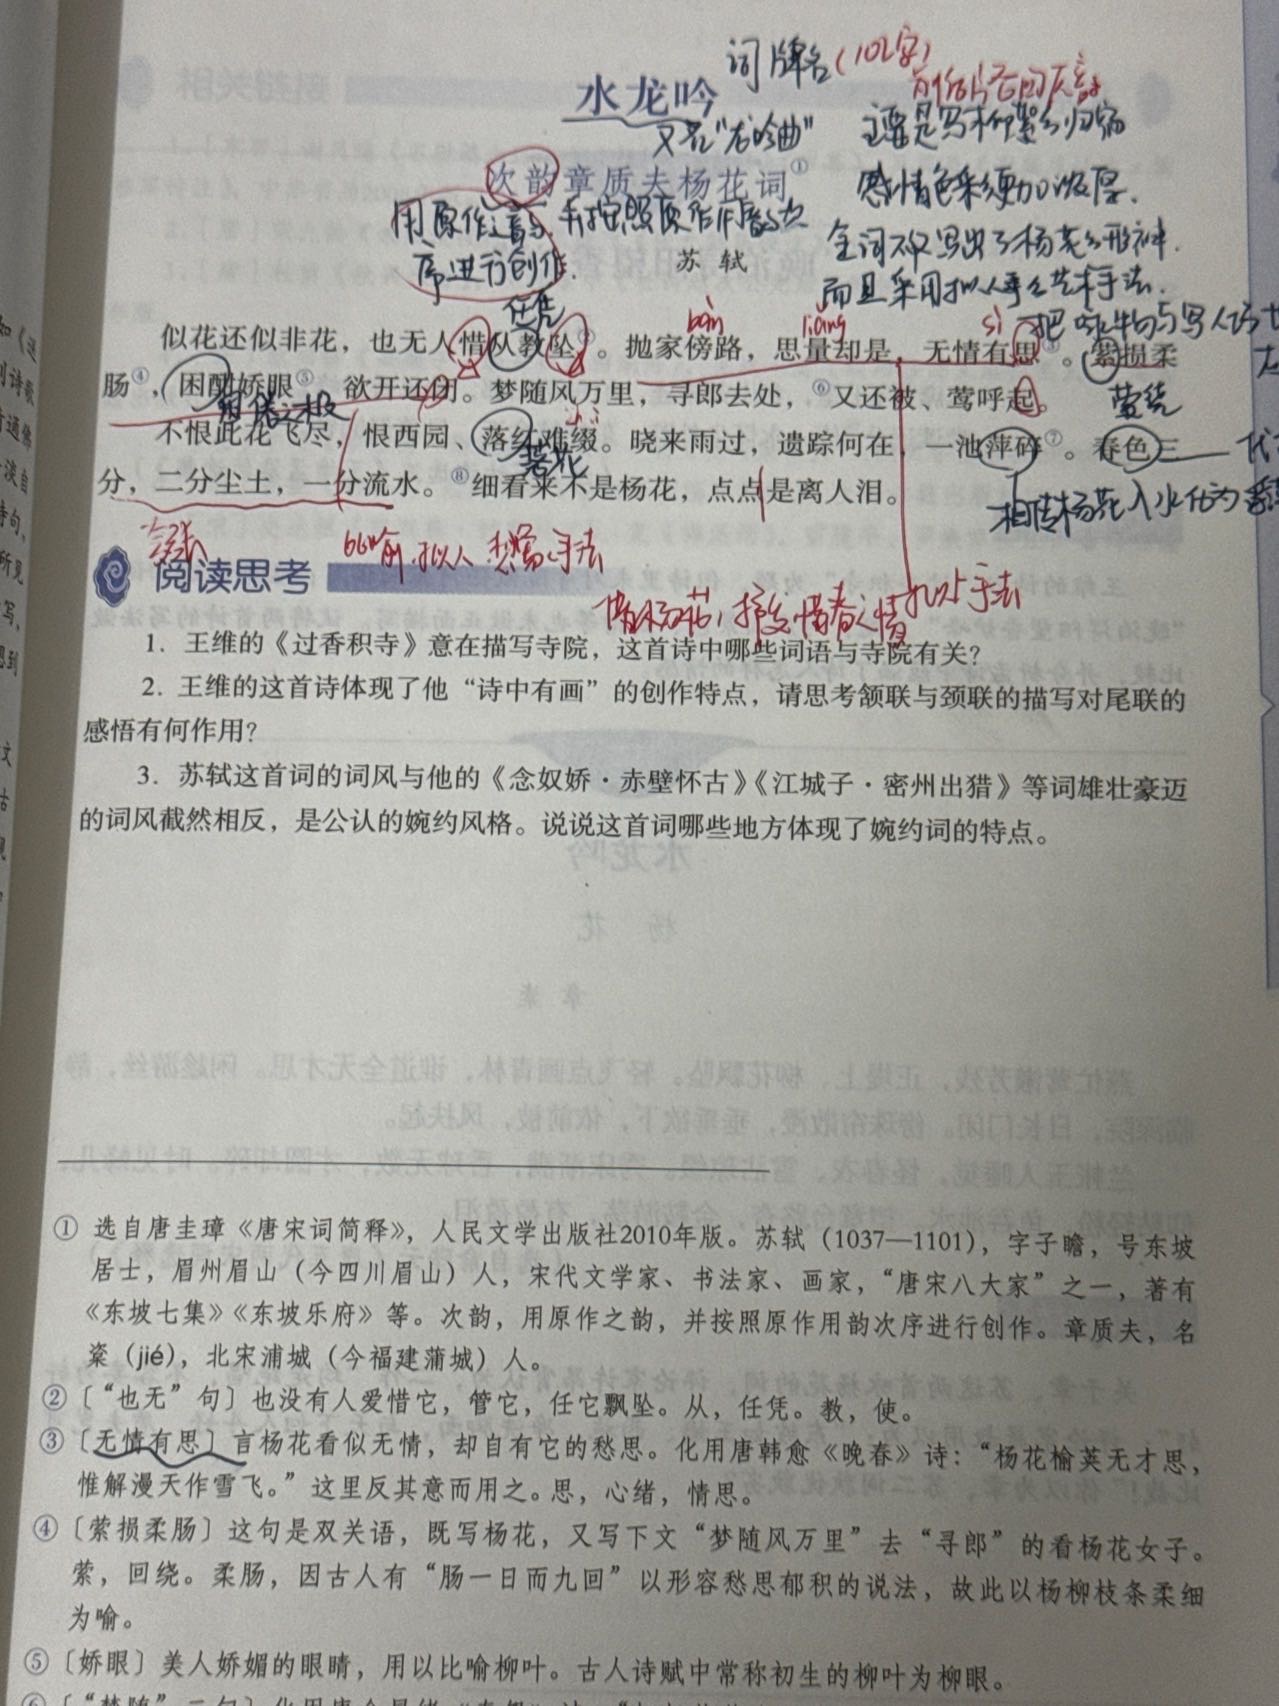 词牌名(102字)
水龙吟
又名"龙吟曲"
主要是写柳絮的归宿
次韵章质夫杨花词①
感情色彩更加浓厚.
用原作之韵,并按照原作用韵次
全词不仅写出了杨花的形神.
序进行创作.
苏 轼
而且采用拟人的艺术手法.
任凭
bàn
liang
sì
把咏物与写人巧
似花还似非花,也无人惜从教坠②。抛家傍路,思量却是,无情有思③。萦损柔
肠④,困酣娇眼⑤,欲开还闭。梦随风万里,寻郎去处,⑥又还被、莺呼起。
萦绕
不恨此花飞尽,恨西园、落红难缀。晓来雨过,遗踪何在,一池萍碎⑦。春色三
落花
分,二分尘土,一分流水。⑧细看来不是杨花,点点是离人泪。
相传杨花入水化为
比喻.拟人 想象手法
阅读思考
惜杨花,抒发惜春之情
1. 王维的《过香积寺》意在描写寺院,这首诗中哪些词语与寺院有关?
2. 王维的这首诗体现了他“诗中有画”的创作特点,请思考颔联与颈联的描写对尾联的
感悟有何作用?
3. 苏轼这首词的词风与他的《念奴娇·赤壁怀古》《江城子·密州出猎》等词雄壮豪迈
的词风截然相反,是公认的婉约风格。说说这首词哪些地方体现了婉约词的特点。
① 选自唐圭璋《唐宋词简释》,人民文学出版社2010年版。苏轼(1037—1101),字子瞻,号东坡
居士,眉州眉山(今四川眉山)人,宋代文学家、书法家、画家,“唐宋八大家”之一,著有
《东坡七集》《东坡乐府》等。次韵,用原作之韵,并按照原作用韵次序进行创作。章质夫,名
楶(jié),北宋浦城(今福建蒲城)人。
②〔“也无”句〕也没有人爱惜它,管它,任它飘坠。从,任凭。教,使。
③〔无情有思〕言杨花看似无情,却自有它的愁思。化用唐韩愈《晚春》诗:“杨花榆荚无才思,
惟解漫天作雪飞。”这里反其意而用之。思,心绪,情思。
④〔萦损柔肠〕这句是双关语,既写杨花,又写下文“梦随风万里”去“寻郎”的看杨花女子。
萦,回绕。柔肠,因古人有“肠一日而九回”以形容愁思郁积的说法,故此以杨柳枝条柔细
为喻。
⑤〔娇眼〕美人娇媚的眼睛,用以比喻柳叶。古人诗赋中常称初生的柳叶为柳眼。